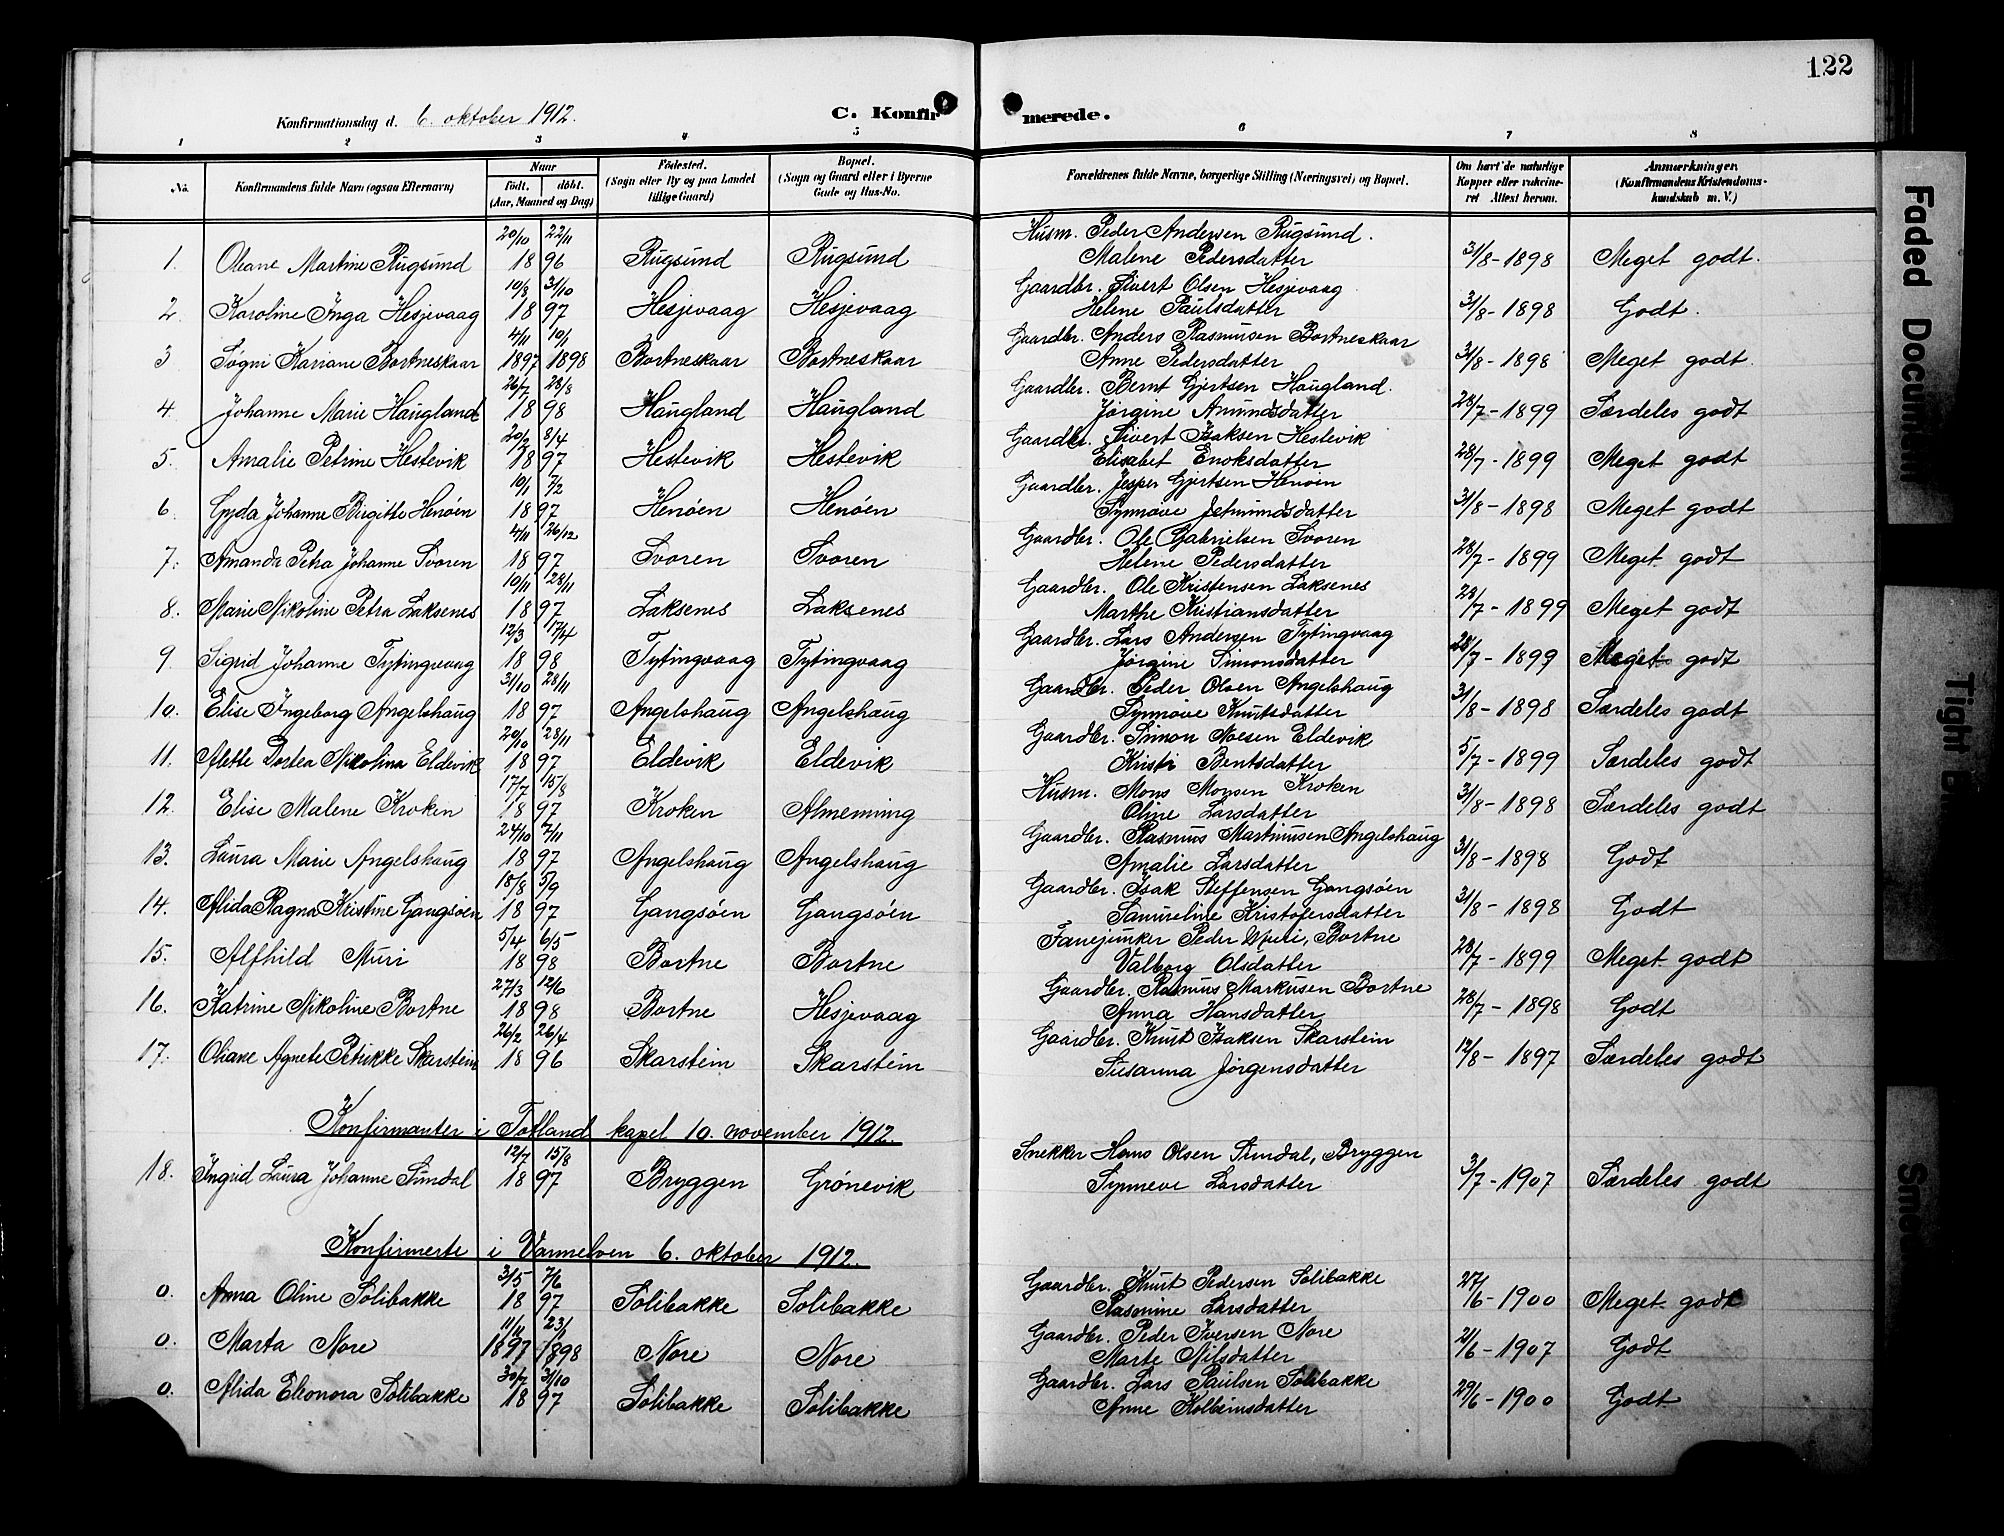 122
Konfirmationsdag d. 6. oktober 1912. C. Konfirmerede.
1 2 3 4 5 6 7 8
No. Konfirmandens fulde Navn (ogsaa Efternavn) Naar født. døbt. (Aar, Maaned og Dag) Fødested. (Sogn eller By og paa Landet tillige Gaard) Bopæl. (Sogn og Gaard eller i Byerne Gade og Hus-No. Forældrenes fulde Navne, borgerlige Stilling (Næringsvei) og Bopæl. Om havt de naturlige Kopper eller vakcineret Attest herom. Anmærkninger (Konfirmandens Kristendomskundskab m. V.)
20/10 22/11 Husm. Peder Andersen Rugsund.
1. Oliane Martine Rugsund 18 96 Rugsund Rugsund Malene Pedersdatter 31/8 - 1898 Meget godt.
10/8 31/10 Gaardbr. Sivert Olsen Hesjevaag
2. Karoline Inga Hesjevaag 18 97 Hesjevaag Hesjevaag Helene Paulsdatter 31/8 - 1898 Godt.
4/11 10/1 Gaardbr. Anders Rasmusen Bortneskaar
3 Søgni Kariane Bortneskaar 1897 1898 Bortneskaar Bortneskaar Anne Pedersdatter 31/8 - 1898 Meget godt.
26/7 28/8 Gaardbr. Bernt Gjertsen Haugland.
4. Johanne Marie Haugland 18 98 Haugland Haugland Jørgine Amundsdatter 28/7 - 1899 Særdeles godt
20/2 8/4 Gaardbr. Sivert Isaksen Hestevik
5. Amalie Petrine Hestevik 18 97 Hestevik Hestevik Elisabet Enoksdatter 28/7 - 1899 Meget godt
10/1 7/2 Gaardbr. Jesper Gjertsen Henøen
6. Gyda Johanne Birgitte Henøen 18 97 Henøen Henøen Synnøve Jetmundsdatter 31/8 - 1898 Meget godt
4/11 26/12 Gaardbr. Ole Gabrielsen Svoren
7. Amanda Petra Johanne Svoren 18 97 Svoren Svoren Helene Pedersdatter 28/7 - 1899 Meget godt
10/11 28/11 Gaardbr. Ole Kristensen Laksenes
8. Marie Nikoline Petra Laksenes 18 97 Laksenes Laksenes Marthe Kristiansdatter 28/7 - 1899 Meget godt
12/3 17/4 Gaardbr. Lars Andersen Tytingvaag
9. Sigrid Johanne Tytingvaag 18 98 Tytingvaag Tytingvaag Jørgine Simonsdatter 28/7 - 1899 Meget godt
31/10 28/11 Gaardbr. Peder Olsen Angelshaug
10. Elise Ingeborg Angelshaug 18 97 Angelshaug Angelshaug Synnøve Knutsdatter 31/8 - 1898 Særdeles godt
20/10 28/11 Gaardbr. Simon Moesen Eldevik
11. Mette Dortea Nikolina Eldevik 18 97 Eldevik Eldevik Kristi Bentsdatter 5/7 - 1899 Særdeles godt
17/7 15/8 Husm. Mons Monsen Kroken
12. Elise Malene Kroken 18 97 Kroken Almeming Oline Larsdatter 31/8 - 1898 Særdeles godt
24/10 7/11 Gaardbr. Rasmus Martinusen Angelshaug
13. Laura Marie Angelshaug 18 97 Angelshaug Angelshaug Amalie Larsdatter 31/8 - 1898 Godt
18/8 5/9 Gaardbr. Isak Steffensen Gangsøen
14. Alida Ragna Kristine Gangsøen 18 97 Gangsøen Gangsøen Samueline Kristofersdatter 31/8 - 1898 Godt
5/4 6/5 Fanejunker Peder Muri, Bortne
15. Alfhild Muri 18 98 Bortne Bortne Valborg Olsdatter 28/7 - 1899 Meget godt
27/3 12/6 Gaardbr. Rasmus Markusen Bortne
16. Katrine Nikoline Bortne 18 98 Bortne Hesjevaag Anna Hansdatter 28/7 - 1898 Godt
26/2 26/4 Gaardbr. Knut Isaksen Skarstein
17. Oliane Agnete Petrikke Skarstein 18 96 Skarstein Skarstein Susanna Jørgensdatter 12/8 - 1897 Særdeles godt
Konfirmanter i Totland kapel 10. november 1912.
12/7 15/8 Snekker Hans Olsen Sindal, Bryggen
18. Ingrid Laura Johanne Sindal 18 97 Bryggen Grønevik Synneve Larsdatter 3/7 - 1907 Særdeles godt
Konfirmerte i Varmelven 6. oktober 1912.
3/5 7/6 Gaardbr. Knut Pedersen Solibakke
0. Anna Oline Solibakke 18 97 Solibakke Solibakke Rasmine Larsdatter 27/6 - 1900 Meget godt
11/11 23/1 Gaardbr. Peder Iversen Nore
0. Marta Nore 1897 1898 Nore Nore Marte Nilsdatter 21/6 - 1907 Godt
30/7 31/10 Gaardbr. Lars Paulsen Solibakke
0. Alida Eleonora Solibakke 18 97 Solibakke Solibakke Anne Kolbeinsdatter 29/6 - 1900 Godt
Faded Document
Tight